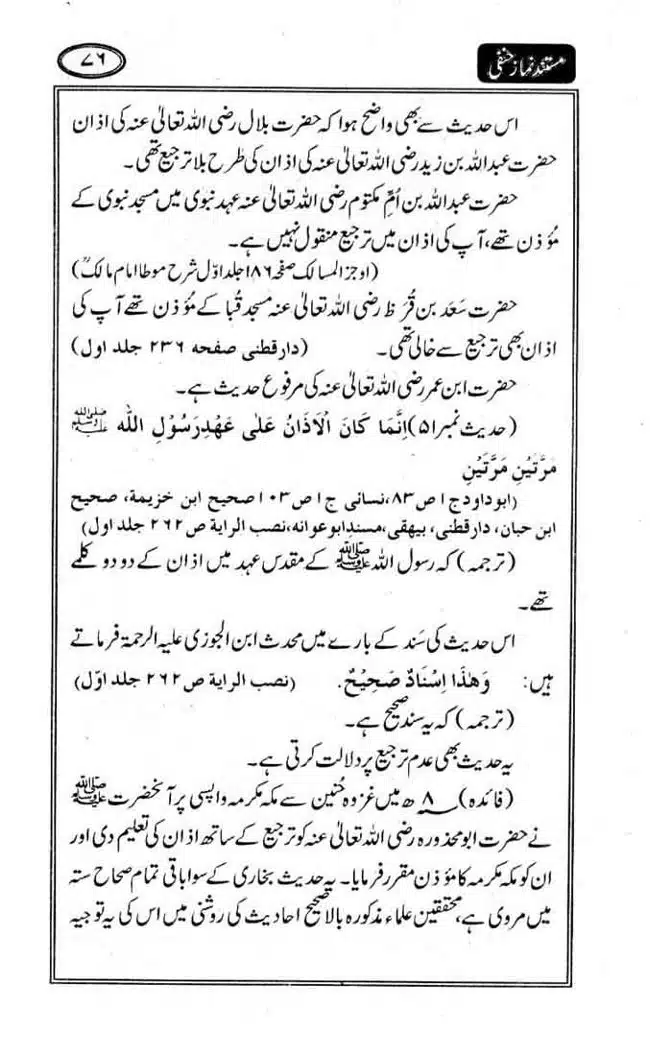 مستند نماز حنفی
۷۶
اس حدیث سے بھی واضح ہوا کہ حضرت بلال رضی اللہ تعالیٰ عنہ کی اذان
حضرت عبداللہ بن زید رضی اللہ تعالیٰ عنہ کی اذان کی طرح بلا ترجیع تھی۔
حضرت عبداللہ بن اُمِّ مکتوم رضی اللہ تعالیٰ عنہ عہد نبوی میں مسجد نبوی کے
مؤذن تھے، آپ کی اذان میں ترجیع منقول نہیں ہے۔
(اوجز المسالک صفحہ ۱۸۶ جلد اوّل شرح موطا امام مالکؒ)
حضرت سَعَد بن قُرَظ رضی اللہ تعالیٰ عنہ مسجد قُبا کے مؤذن تھے آپ کی
اذان بھی ترجیع سے خالی تھی۔ (دار قطنی صفحہ ۲۳۶ جلد اول)
حضرت ابن عمر رضی اللہ تعالیٰ عنہ کی مرفوع حدیث ہے۔
(حدیث نمبر ۵۱) اِنَّمَا كَانَ الْاَذَانُ عَلٰى عَهْدِ رَسُوْلِ اللّٰه ﷺ
مَرَّتَيْنِ مَرَّتَيْنِ
(ابو داود ج ۱ ص ۸۳، نسائی ج ۱ ص ۱۰۳ صحیح ابن خزیمة، صحیح
ابن حبان، دار قطنی، بیهقی، مسند ابو عوانه، نصب الرایة ص ۲۶۲ جلد اول)
(ترجمہ) کہ رسول اللہ ﷺ کے مقدس عہد میں اذان کے دو دو کلمے
تھے۔
اس حدیث کی سَند کے بارے میں محدث ابن الجوزی علیہ الرحمۃ فرماتے
ہیں: وَهٰذَا اِسْنَادٌ صَحِيْحٌ. (نصب الرایة ص ۲۶۲ جلد اوّل)
(ترجمہ) کہ یہ سند صحیح ہے۔
یہ حدیث بھی عدم ترجیع پر دلالت کرتی ہے۔
(فائدہ) ۸ ھ میں غزوہ حُنین سے مکہ مکرمہ واپسی پر آنحضرت ﷺ
نے حضرت ابو محذورہ رضی اللہ تعالیٰ عنہ کو ترجیع کے ساتھ اذان کی تعلیم دی اور
ان کو مکہ مکرمہ کا مؤذن مقرر فرمایا۔ یہ حدیث بخاری کے سوا باقی تمام صحاح ستہ
میں مروی ہے، محققین علماء مذکورہ بالا صحیح احادیث کی روشنی میں اس کی یہ توجیہ